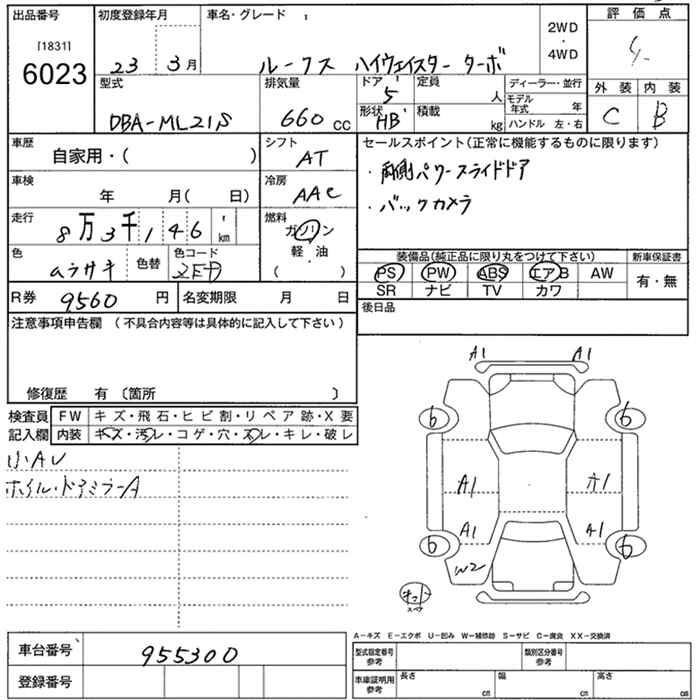 出品番号 初度登録年月 車名・グレード 評価点
[1831]
6023 23 3月 ルークス ハイウェイスター ターボ 2WD・4WD
型式 排気量 ドア 5 定員 人 ディーラー・並行 外装 内装
DBA-ML21S 660 CC 形状 HB 積載 kg モデル年式 年 C B
ハンドル 左・右
車歴 自家用・( ) シフト AT セールスポイント(正常に機能するものに限ります)
車検 年 月( 日) 冷房 AAC ・両側パワースライドドア
走行 8万3千146 km 燃料 ガソリン ・バックカメラ
軽・油
( )
色 ムラサキ 色替 色コード 装備品(純正品に限り丸をつけて下さい) 新車保証書
PS PW ABS エアB AW 有・無
SR ナビ TV カワ
R券 9560 円 名変期限 月 日 後日品
注意事項申告欄 (不具合内容等は具体的に記入して下さい)
修復歴 有 〔箇所 〕
検査員 FW キズ・飛石・ヒビ割・リペア跡・X要
記入欄 内装 キズ・汚レ・コゲ・穴・スレ・キレ・破レ
小AU
ホイル・ドアミラーA
A1 A1
6 6
A1 A1
A1 A1
6 6
W2
スペア
A-キズ E-エクボ U-凹み W-補修跡 S-サビ C-腐食 XX-交換済
車台番号 955300 型式指定番号 参考 類別区分番号 参考
登録番号 車庫証明用 参考 長さ cm 幅 cm 高さ cm